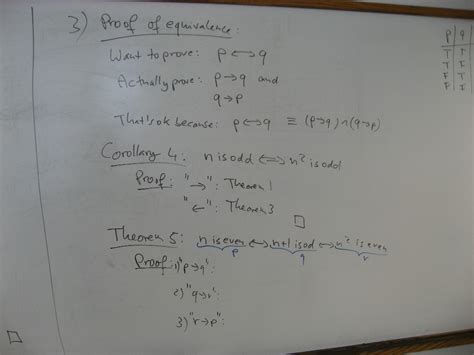 3) Proof of equivalence:
Want to prove: p ↔ q
Actually prove: p → q and
q → p
That's ok because: p ↔ q ≡ (p → q) ∧ (q → p)
Corollary 4: n is odd ⟺ n² is odd
Proof: "→": Theorem 1
"←": Theorem 3
□
Theorem 5: n is even ↔ n+1 is odd ↔ n² is even
p q r
Proof: 1) "p → q":
2) "q → r":
3) "r → p":
□
p q
T T
T F
F T
F F